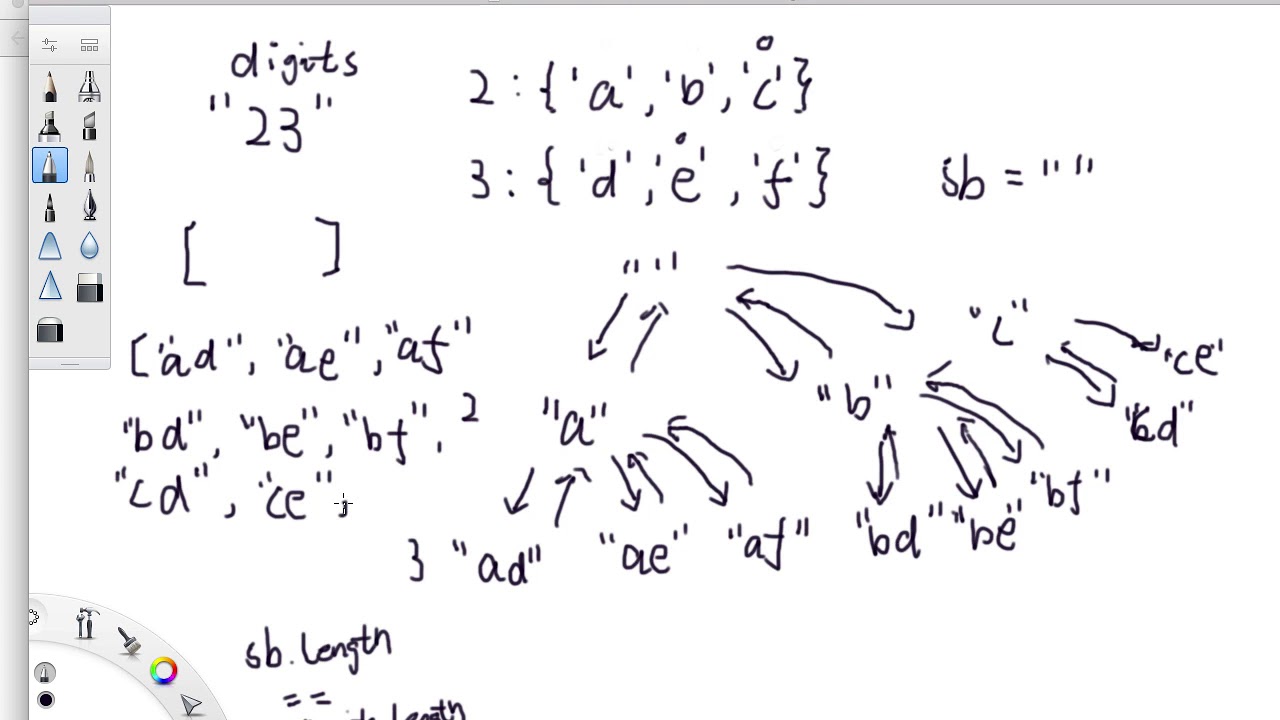 digits
"23"
2 : {'a', 'b', 'c'}
3 : {'d', 'e', 'f'}
sb = ""
[ ]
["ad", "ae", "af"
"bd", "be", "bf",
"cd", "ce",
""
2 "a" "b" "c"
3 "ad" "ae" "af" "bd" "be" "bf" "cd" "ce"
sb.length
==
length